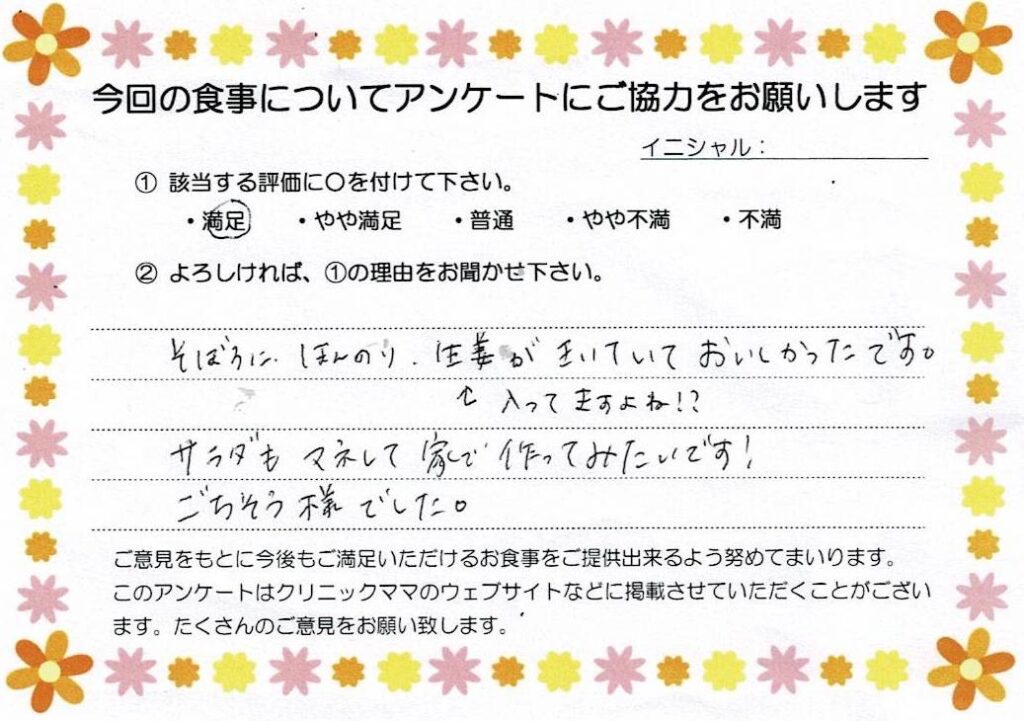 今回の食事についてアンケートにご協力をお願いします
イニシャル：
① 該当する評価に〇を付けて下さい。
・満足 ・やや満足 ・普通 ・やや不満 ・不満
② よろしければ、①の理由をお聞かせ下さい。
そぼろに、ほんのり、生姜がきいていておいしかったです。
↑入ってますよね!?
サラダもマネして家で作ってみたいです!
ごちそう様でした。
ご意見をもとに今後もご満足いただけるお食事をご提供出来るよう努めてまいります。
このアンケートはクリニックママのウェブサイトなどに掲載させていただくことがござい
ます。たくさんのご意見をお願い致します。